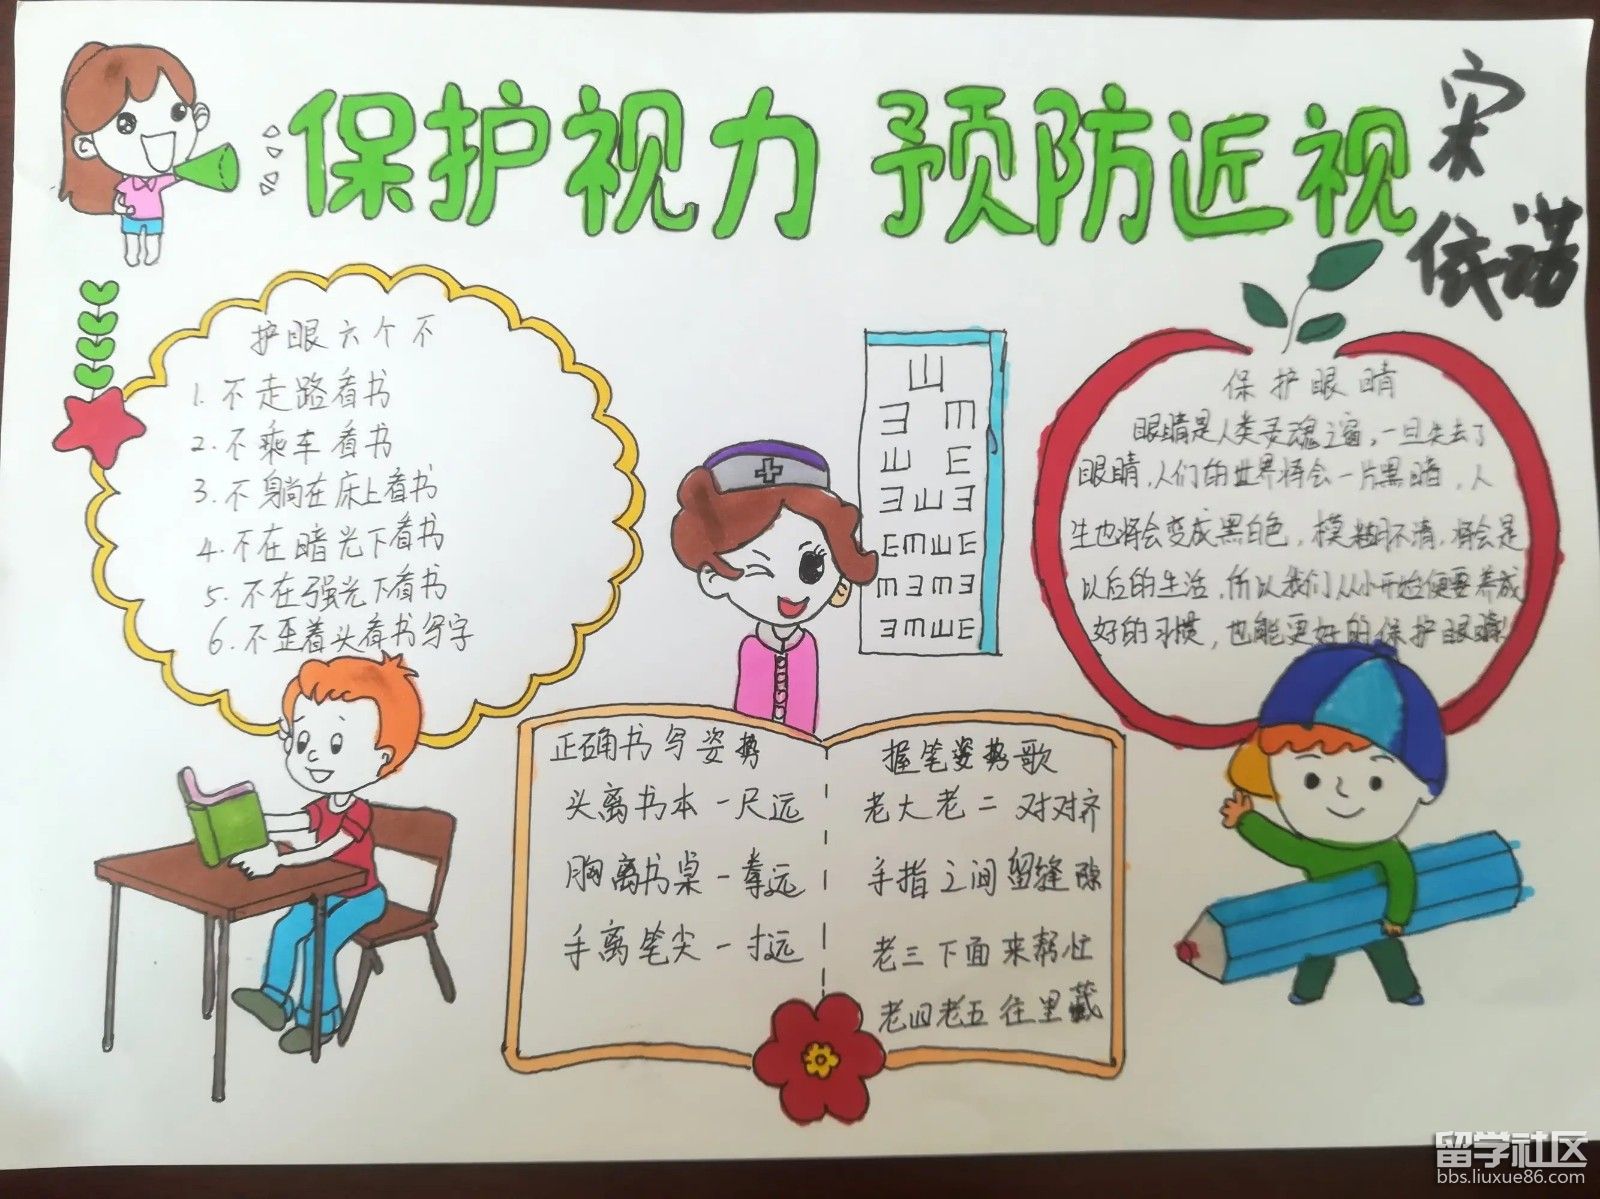 保护视力 预防近视
宋
依诺
护眼六个不
1. 不走路看书
2. 不乘车看书
3. 不躺在床上看书
4. 不在暗光下看书
5. 不在强光下看书
6. 不歪着头看书写字
山
ヨ m
山 E
ヨ山ヨ
E m 山 E
m ヨ m ヨ
ヨ m 山 E
保护眼晴
眼睛是人类灵魂之窗,一旦失去了
眼睛,人们的世界将会一片黑暗,人
生也将会变成黑白色,模糊不清,将会是
以后的生活,所以我们从小开始便要养成
好的习惯,也能更好的保护眼睛!
正确书写姿势
头离书本一尺远
胸离书桌一拳远
手离笔尖一寸远
握笔姿势歌
老大老二对对齐
手指之间留缝隙
老三下面来帮忙
老四老五往里藏
留学社区
bbs.liuxue86.com